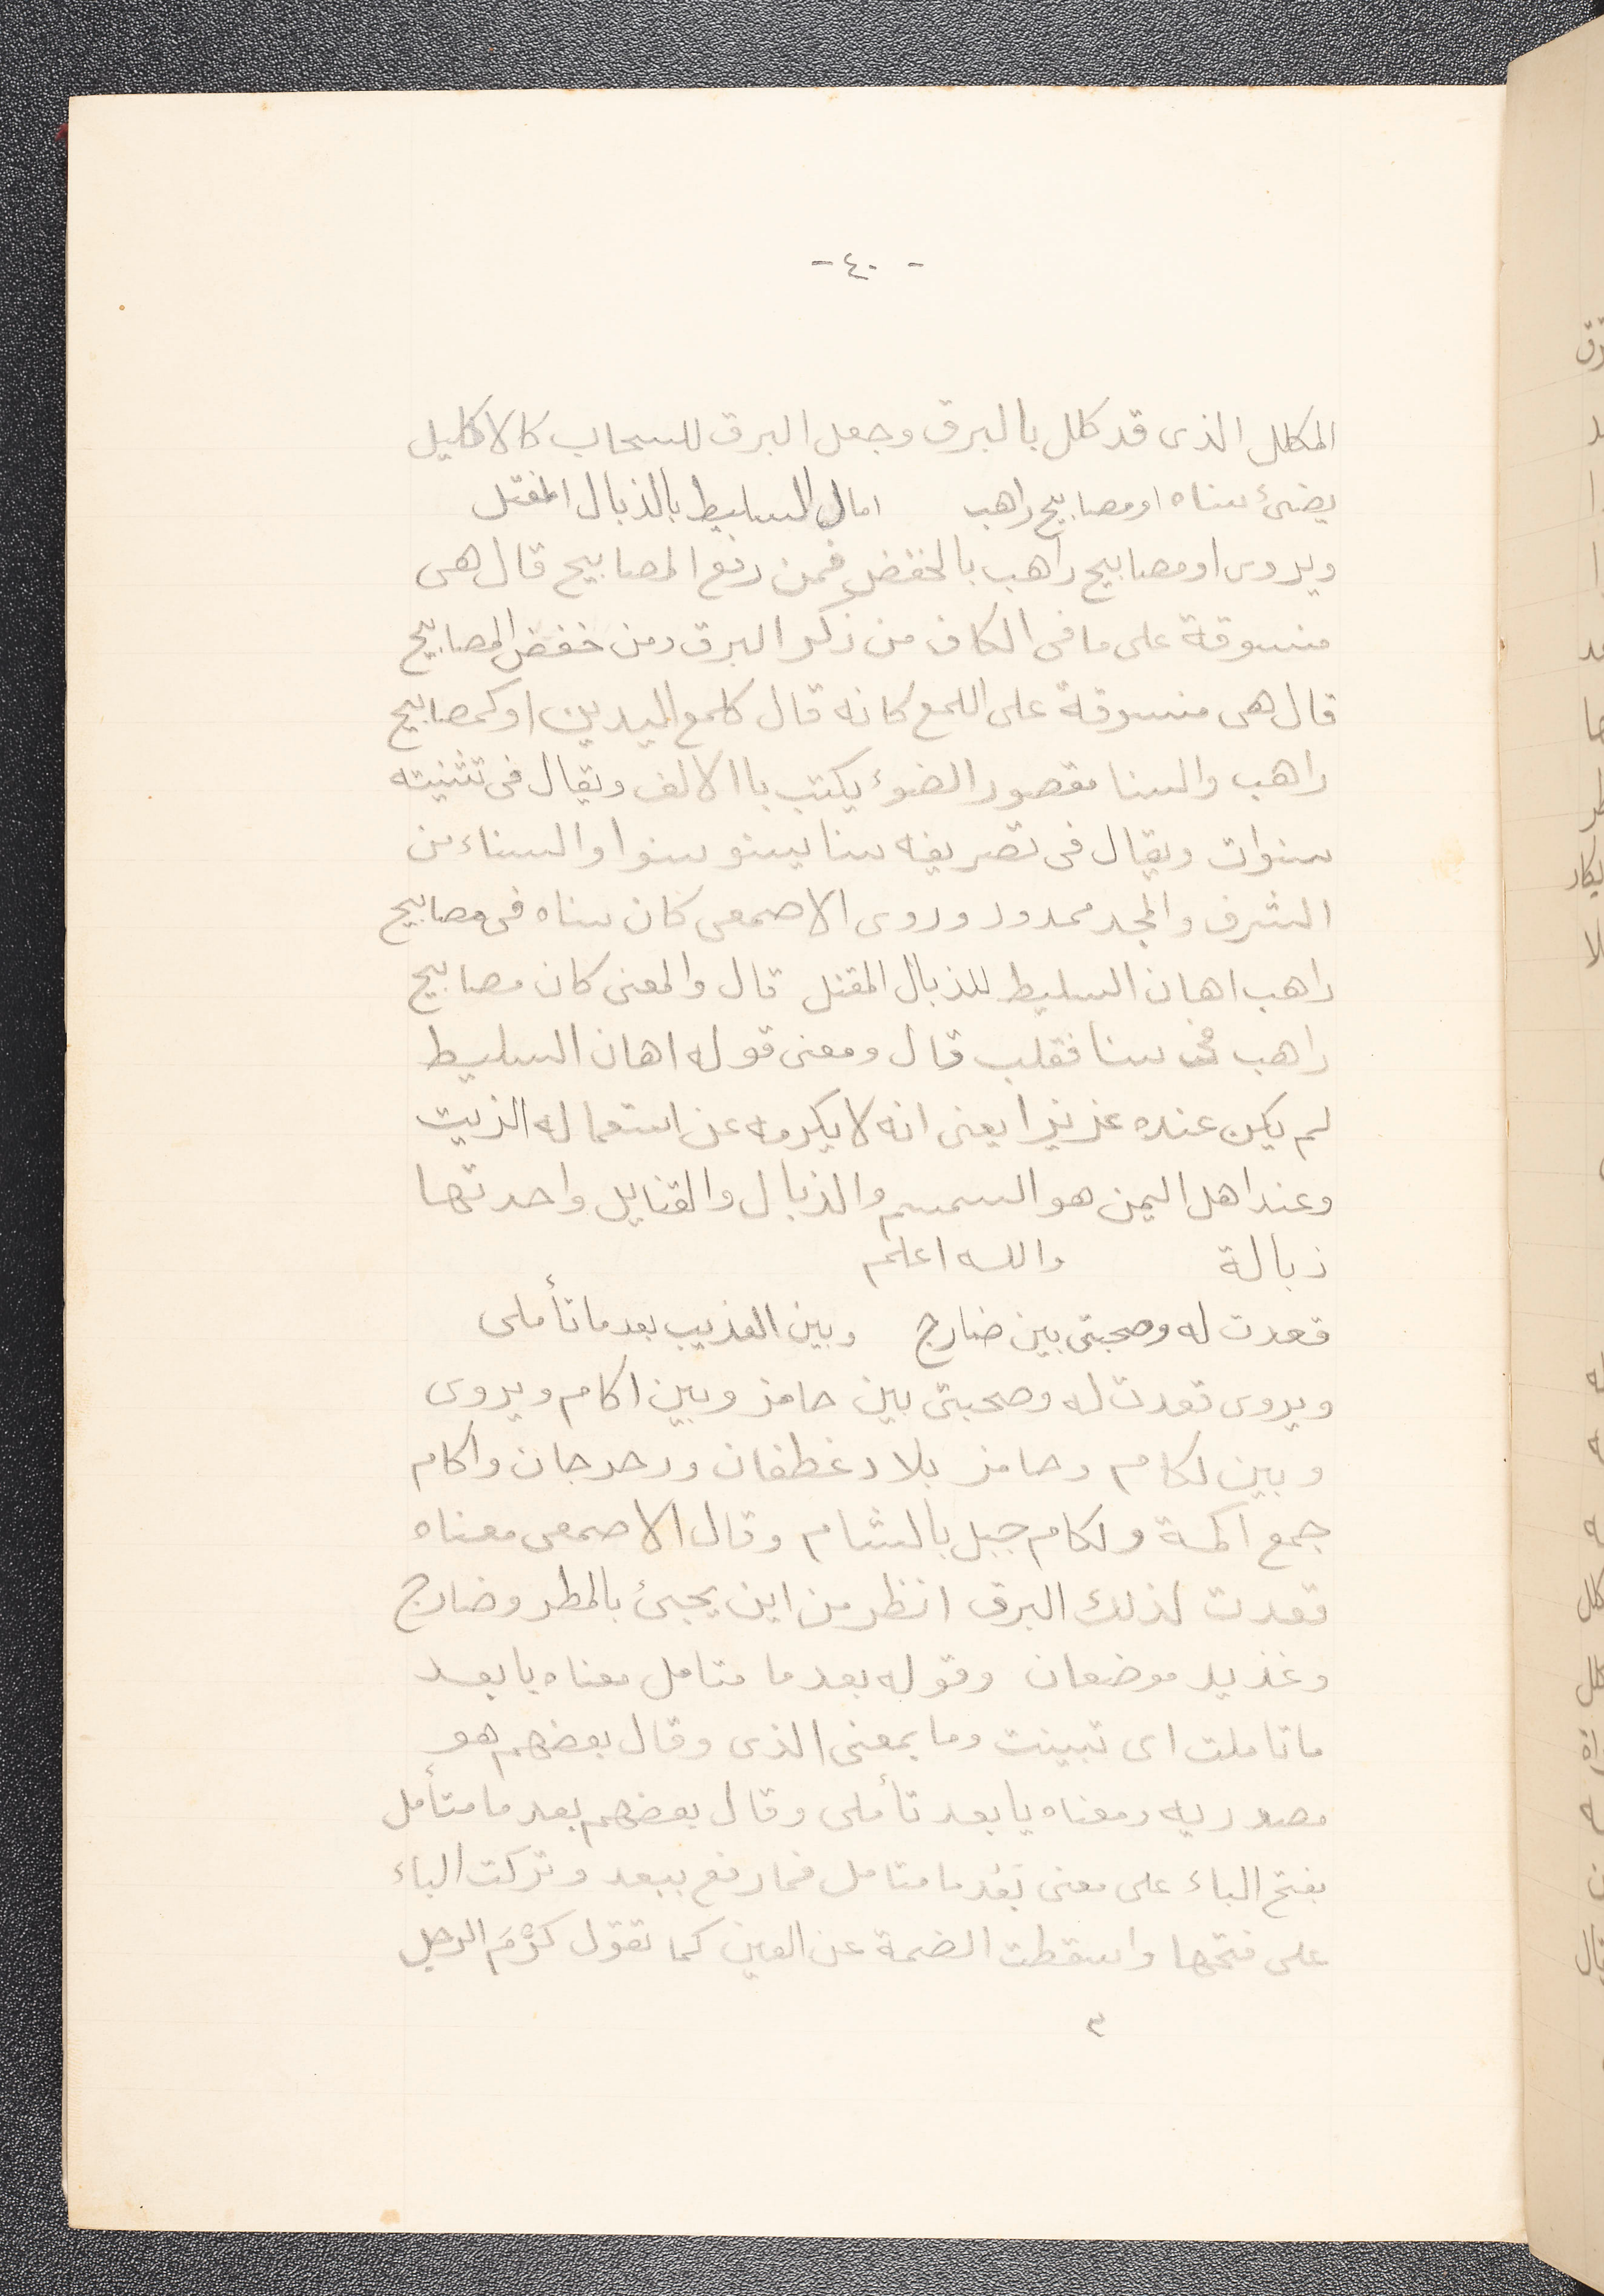 - ٤٠ -
المكلل الذى قد كلل بالبرق وجعل البرق للسحاب كالاكليل
يضئ سناه او مصابيح راهب امال السليط بالذبال المفتل
ويروى او مصابيح راهب بالخفض فمن رفع المصابيح قال هى
منسوقة على ما فى الكاف من ذكر البرق ومن خفض المصابيح
قال هى منسوقة على اللمع كانه قال كلمع اليدين او كمصابيح
راهب والسنا مقصور الضوء يكتب باالالف ويقال فى تثنيته
سنوات ويقال فى تصريفه سنا يسنو سنوا والسناء من
الشرف والمجد ممدود وروى الاصمعى كان سناه فى مصابيح
راهب اهان السليط للذبال المفتل قال والمعنى كان مصابيح
راهب فى سنا فقلب قال ومعنى قوله اهان السليط
لم يكن عنده عزيزا يعنى انه لا يكرمه عن استعماله الزيت
وعند اهل اليمن هو السمسم والذبال والقنايل واحدتها
ذبالة والله اعلم
قعدت له وصحبتى بين ضارج وبين العذيب بعد ما تأملى
ويروى قعدت له وصحبتى بين حامز وبين اكام ويروى
وبين لكام وحامز بلاد غطفان ورحرحان واكام
جمع اكمة ولكام جبل بالشام وقال الاصمعى معناه
قعدت لذلك البرق انظر من اين يجيئ بالمطر وضارج
وغذيد موضعان وقوله بعد ما متامل معناه يا بعد
ماتاملت اى تبينت وما بمعنى الذى وقال بعضهم هو
مصدريه ومعناه يا بعد تأملى وقال بعضهم بعد ما متأمل
بفتح الباء على معنى بَعُد ما متامل فما رفع ببعد وتركت الباء
على فتحها واسقطت الضمة عن العين كما تقول كَرْمَ الرجل